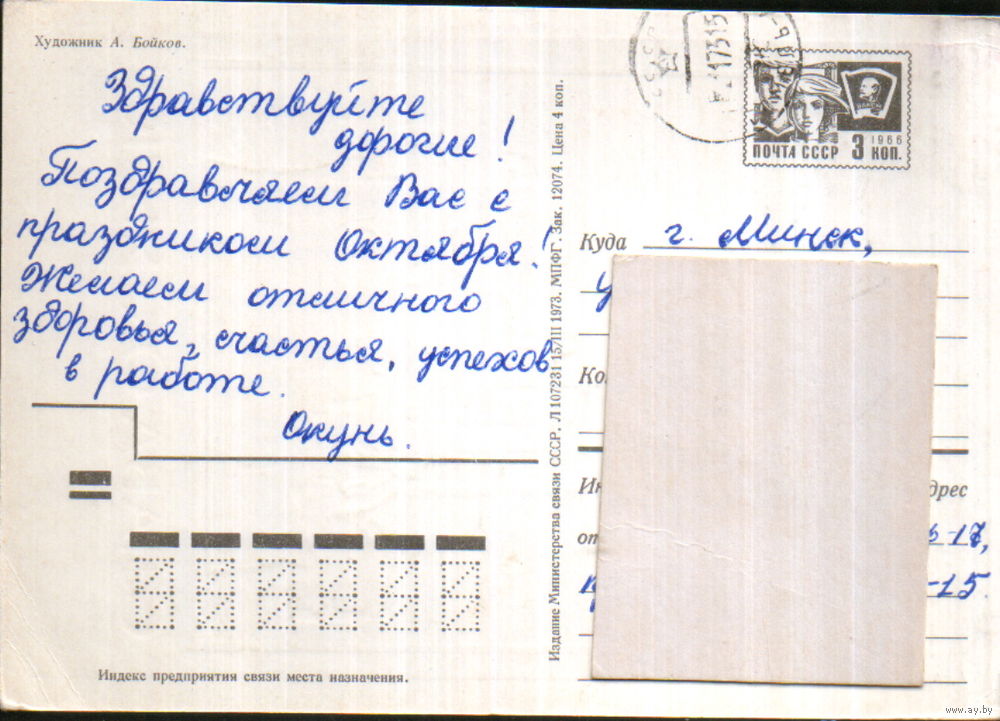 Художник А. Бойков.
Здравствуйте
дорогие!
Поздравляем Вас с
праздником Октября!
Желаем отличного
здоровья, счастья, успехов
в работе.
Окунь.
Индекс предприятия связи места назначения.
Издание Министерства связи СССР. Л 107231 15/III 1973. МПФГ. Зак. 12074. Цена 4 коп.
СССР
1966
ВЛКСМ
ПОЧТА СССР 3 КОП.
Куда г. Минск,
у
Ко
Ин дрес
от -17,
-15.
www.ay.by